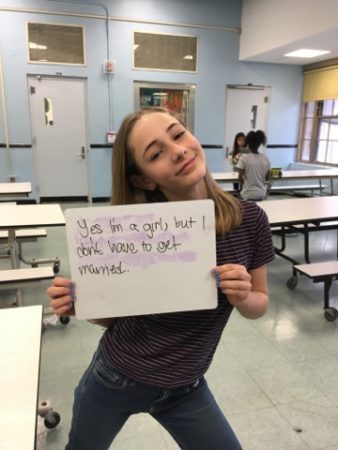 Yes I'm a girl, but I
don't have to get
married.